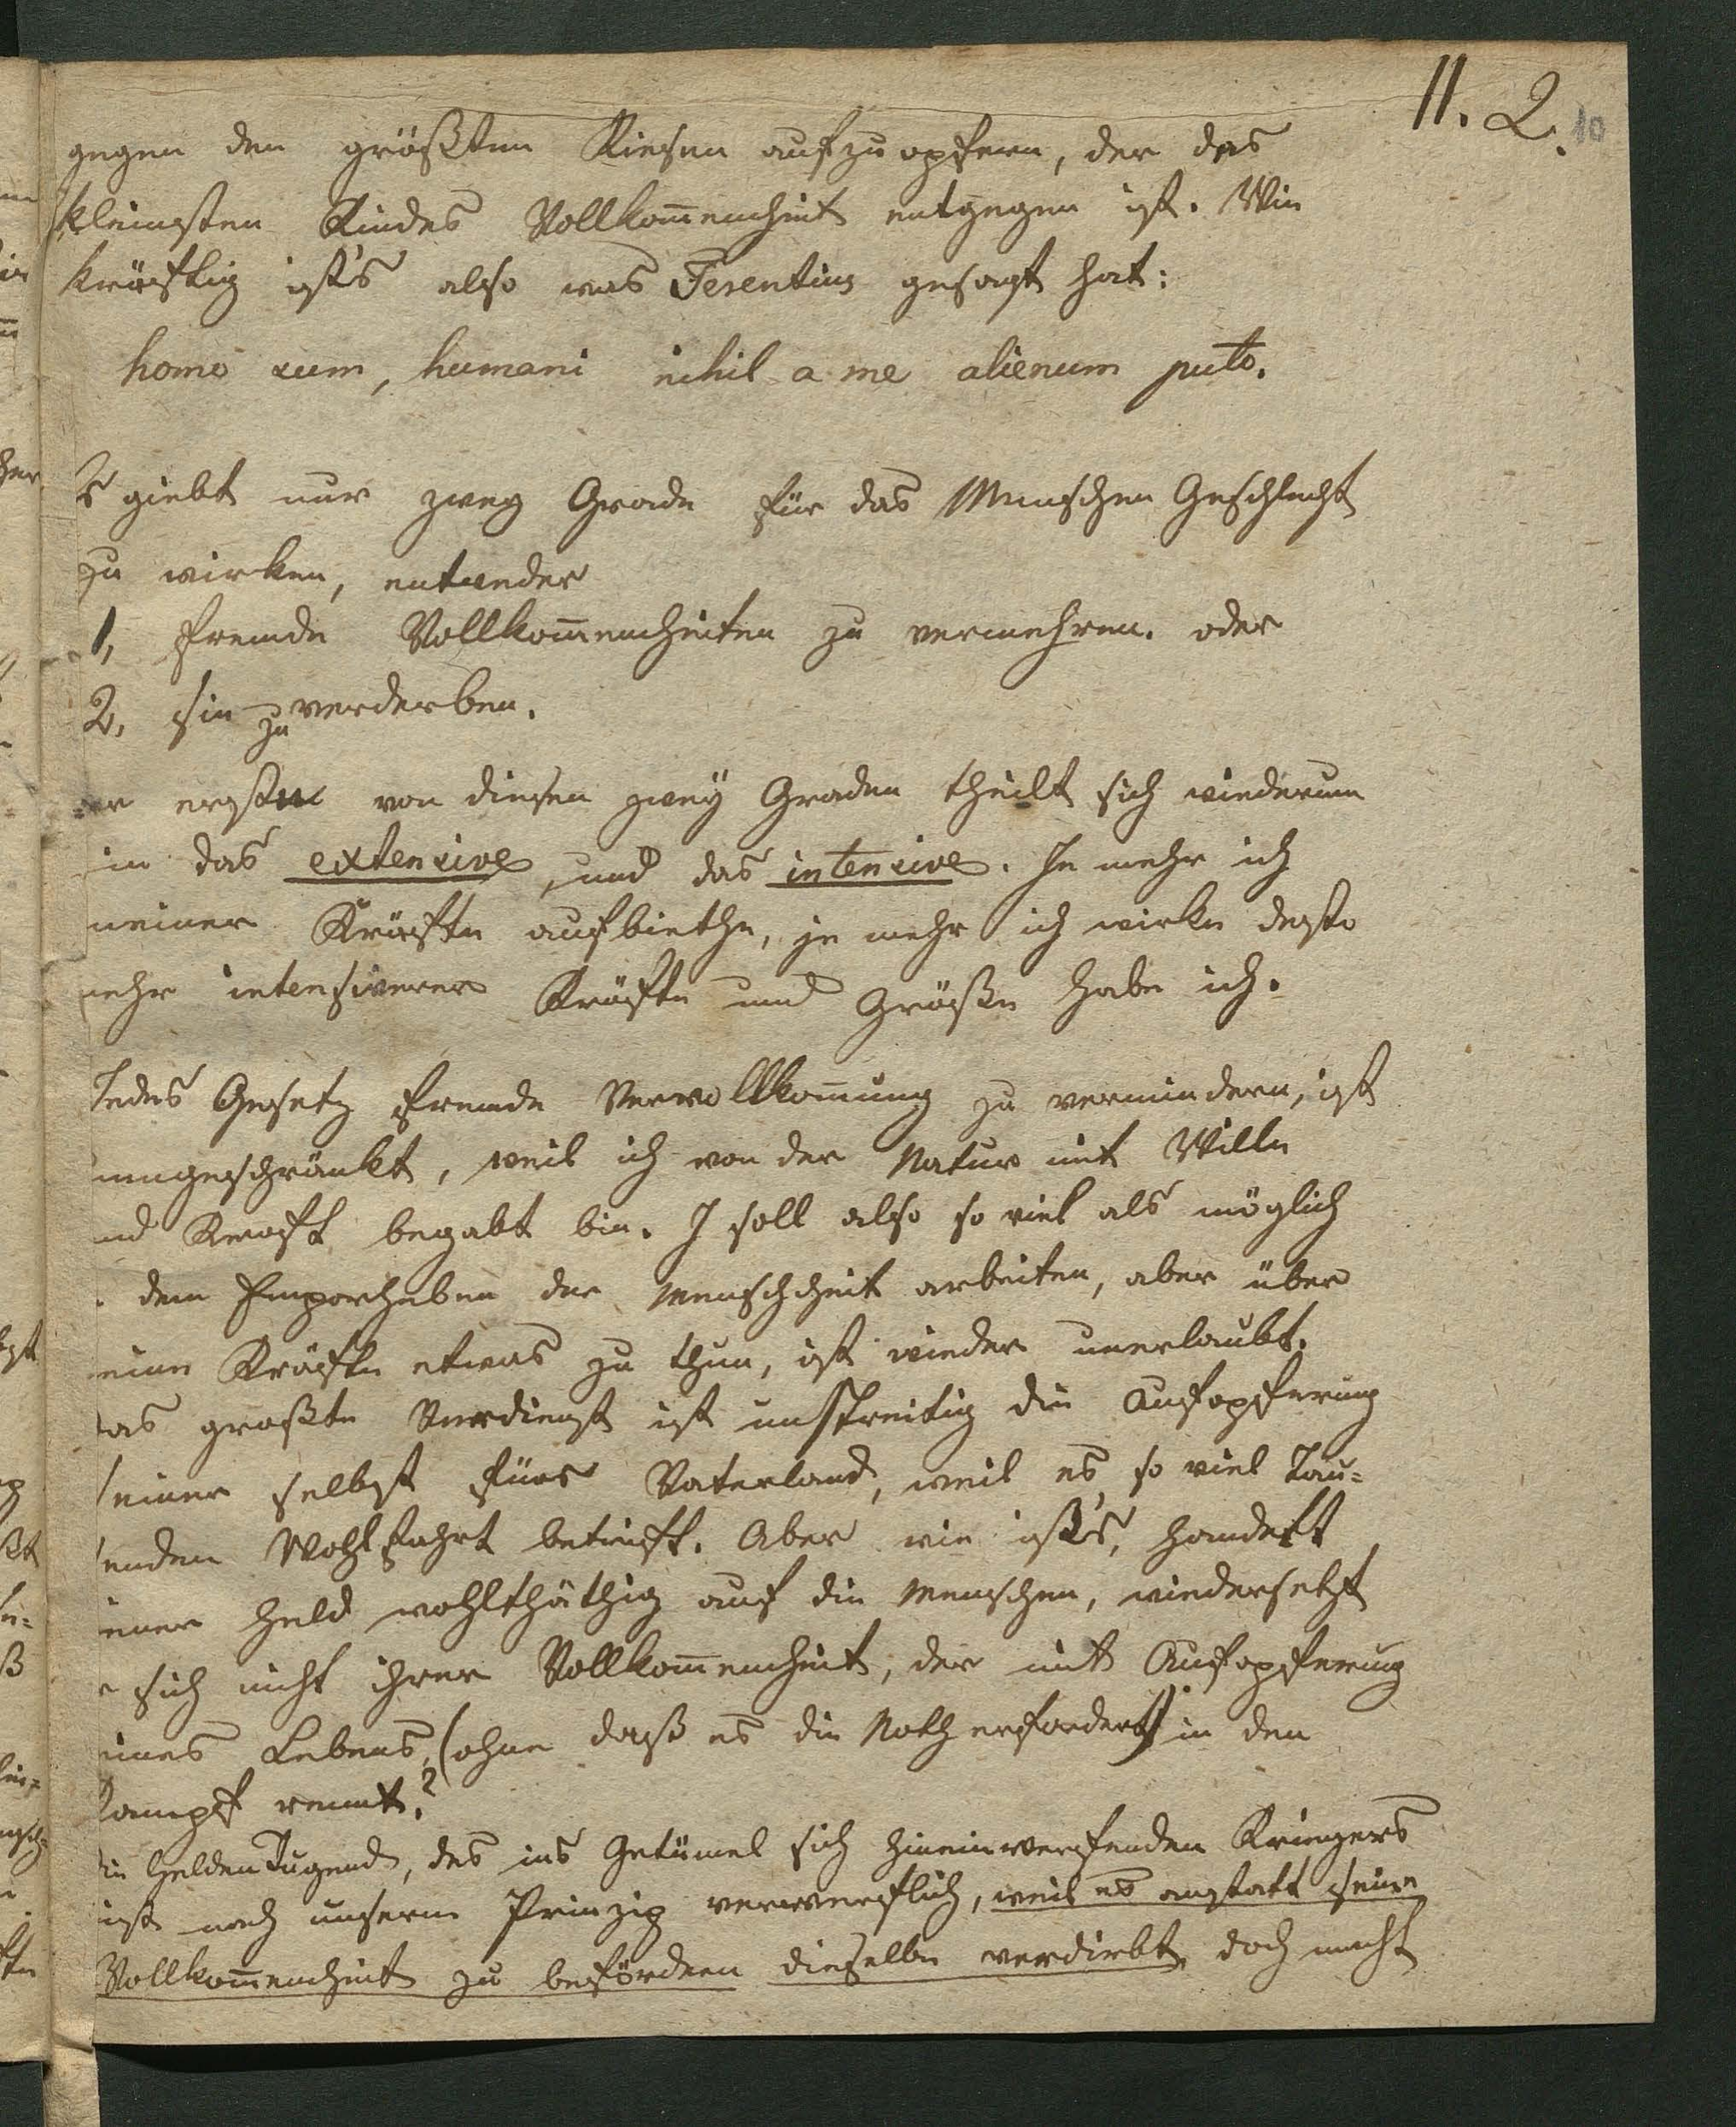 11. 2. 10
gegen den größten Riesen aufzuopfern, der des
kleinsten Kindes Vollkom̅enheit entgegen ist. Wie
kräftig ist's also was Terentius gesagt hat:
homo sum, humani nihil a me alienum puto.
s giebt nur zwey Grade für das Menschen Geschlecht
zu wirken, entweder
1, fremde Vollkom̅enheiten zu vermehren. oder
2, sie zu verderben.
er erste von diesen zwey Graden theilt sich wiederum
in das extensive, und das intensive. Je mehr ich
meiner Kräfte aufbiethe, je mehr ich wirke desto
mehr intensiverer Kräfte und Größe habe ich.
Jedes Gesetz fremde Vervollkom̅nung zu vermindern, ist
eingeschränkt, weil ich von der Natur mit Wille
nd Kraft begabt bin. I soll also so viel als möglich
dem Emporheben der Menschheit arbeiten, aber über
eine Kräfte etwas zu thun, ist wieder unerlaubt.
as großte Verdienst ist unstreitig die Aufopferung
seiner selbst fürs Vaterland, weil es so viel Tau=
senden Wohlfahrt betrifft. Aber wie ist's, handelt
jener Held wohlthäthig auf die Menschen, wiedersetzt
r sich nicht ihrer Vollkom̅enheit, der mit Aufopferung
eines Lebens, (ohne daß es die Noth erfordert) in den
Kampf rennt?
die Helden Tugend, des ins Getümel sich hineinwerfenden Kriegers
ist nach unserm Prinzip verwerflich, weil es anstatt seine
Vollkom̅enheit zu befördern dieselbe verdirbt, doch macht